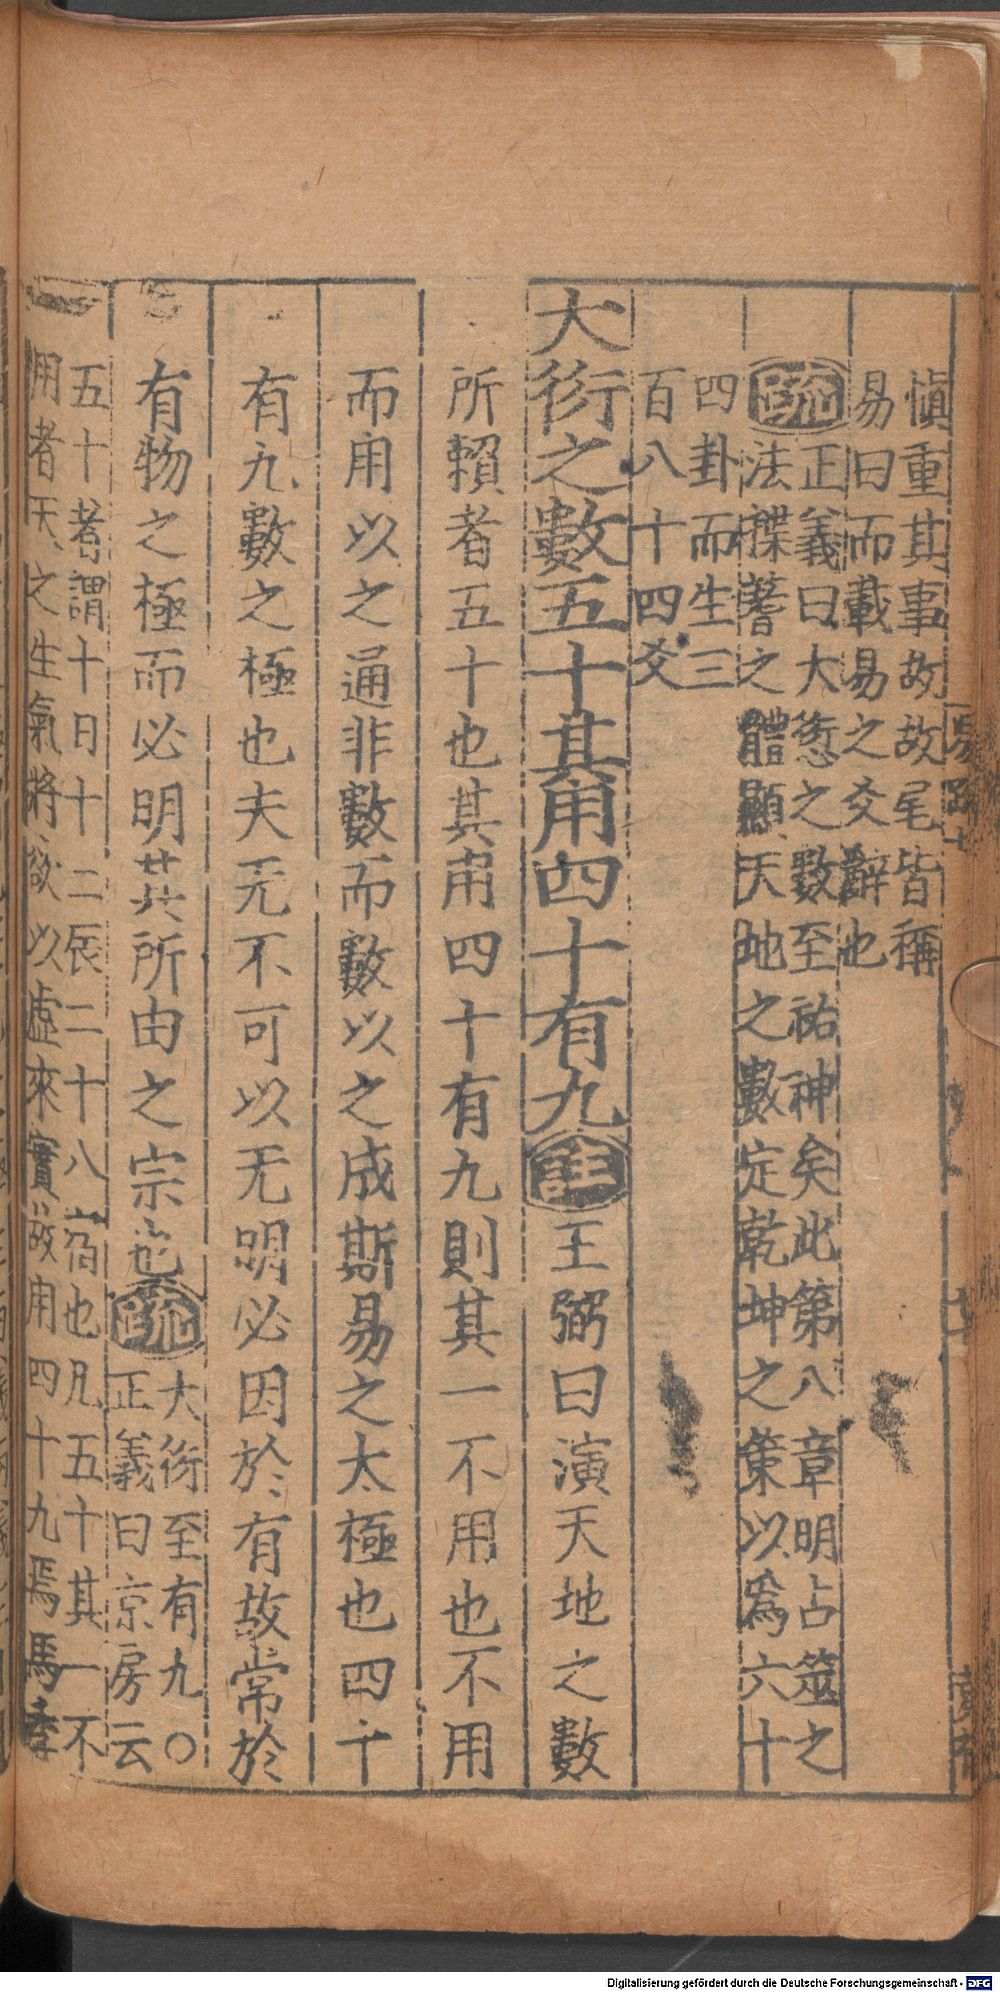 慎重其事故故尾皆稱
易曰而載易之爻辭也
疏
正義曰大衍之數至祐神矣此第八章明占筮之
法揲蓍之體顯天地之數定乾坤之策以爲六十
四卦而生三
百八十四爻
大衍之數五十其用四十有九注王弼曰演天地之數
所賴者五十也其用四十有九則其一不用也不用
而用以之通非數而數以之成斯易之太極也四十
有九數之極也夫无不可以无明必因於有故常於
有物之極而必明其所由之宗也疏
大衍至有九〇
正義曰京房云
五十者謂十日十二辰二十八宿也凡五十其一不
用者天之生氣將欲以虛來實故用四十九焉馬季
Digitalisierung gefördert durch die Deutsche Forschungsgemeinschaft - DFG